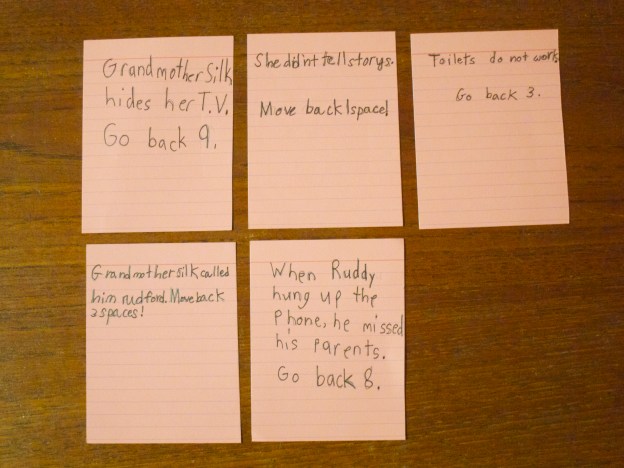 Grandmother Silk
hides her T.V.
Go back 9.
She didn't tell storys.
Move back 1 space!
Toilets do not work
Go back 3.
Grandmother silk called
him rudford. Move back
2 spaces!
When Ruddy
hung up the
Phone, he missed
his parents.
Go back 8.